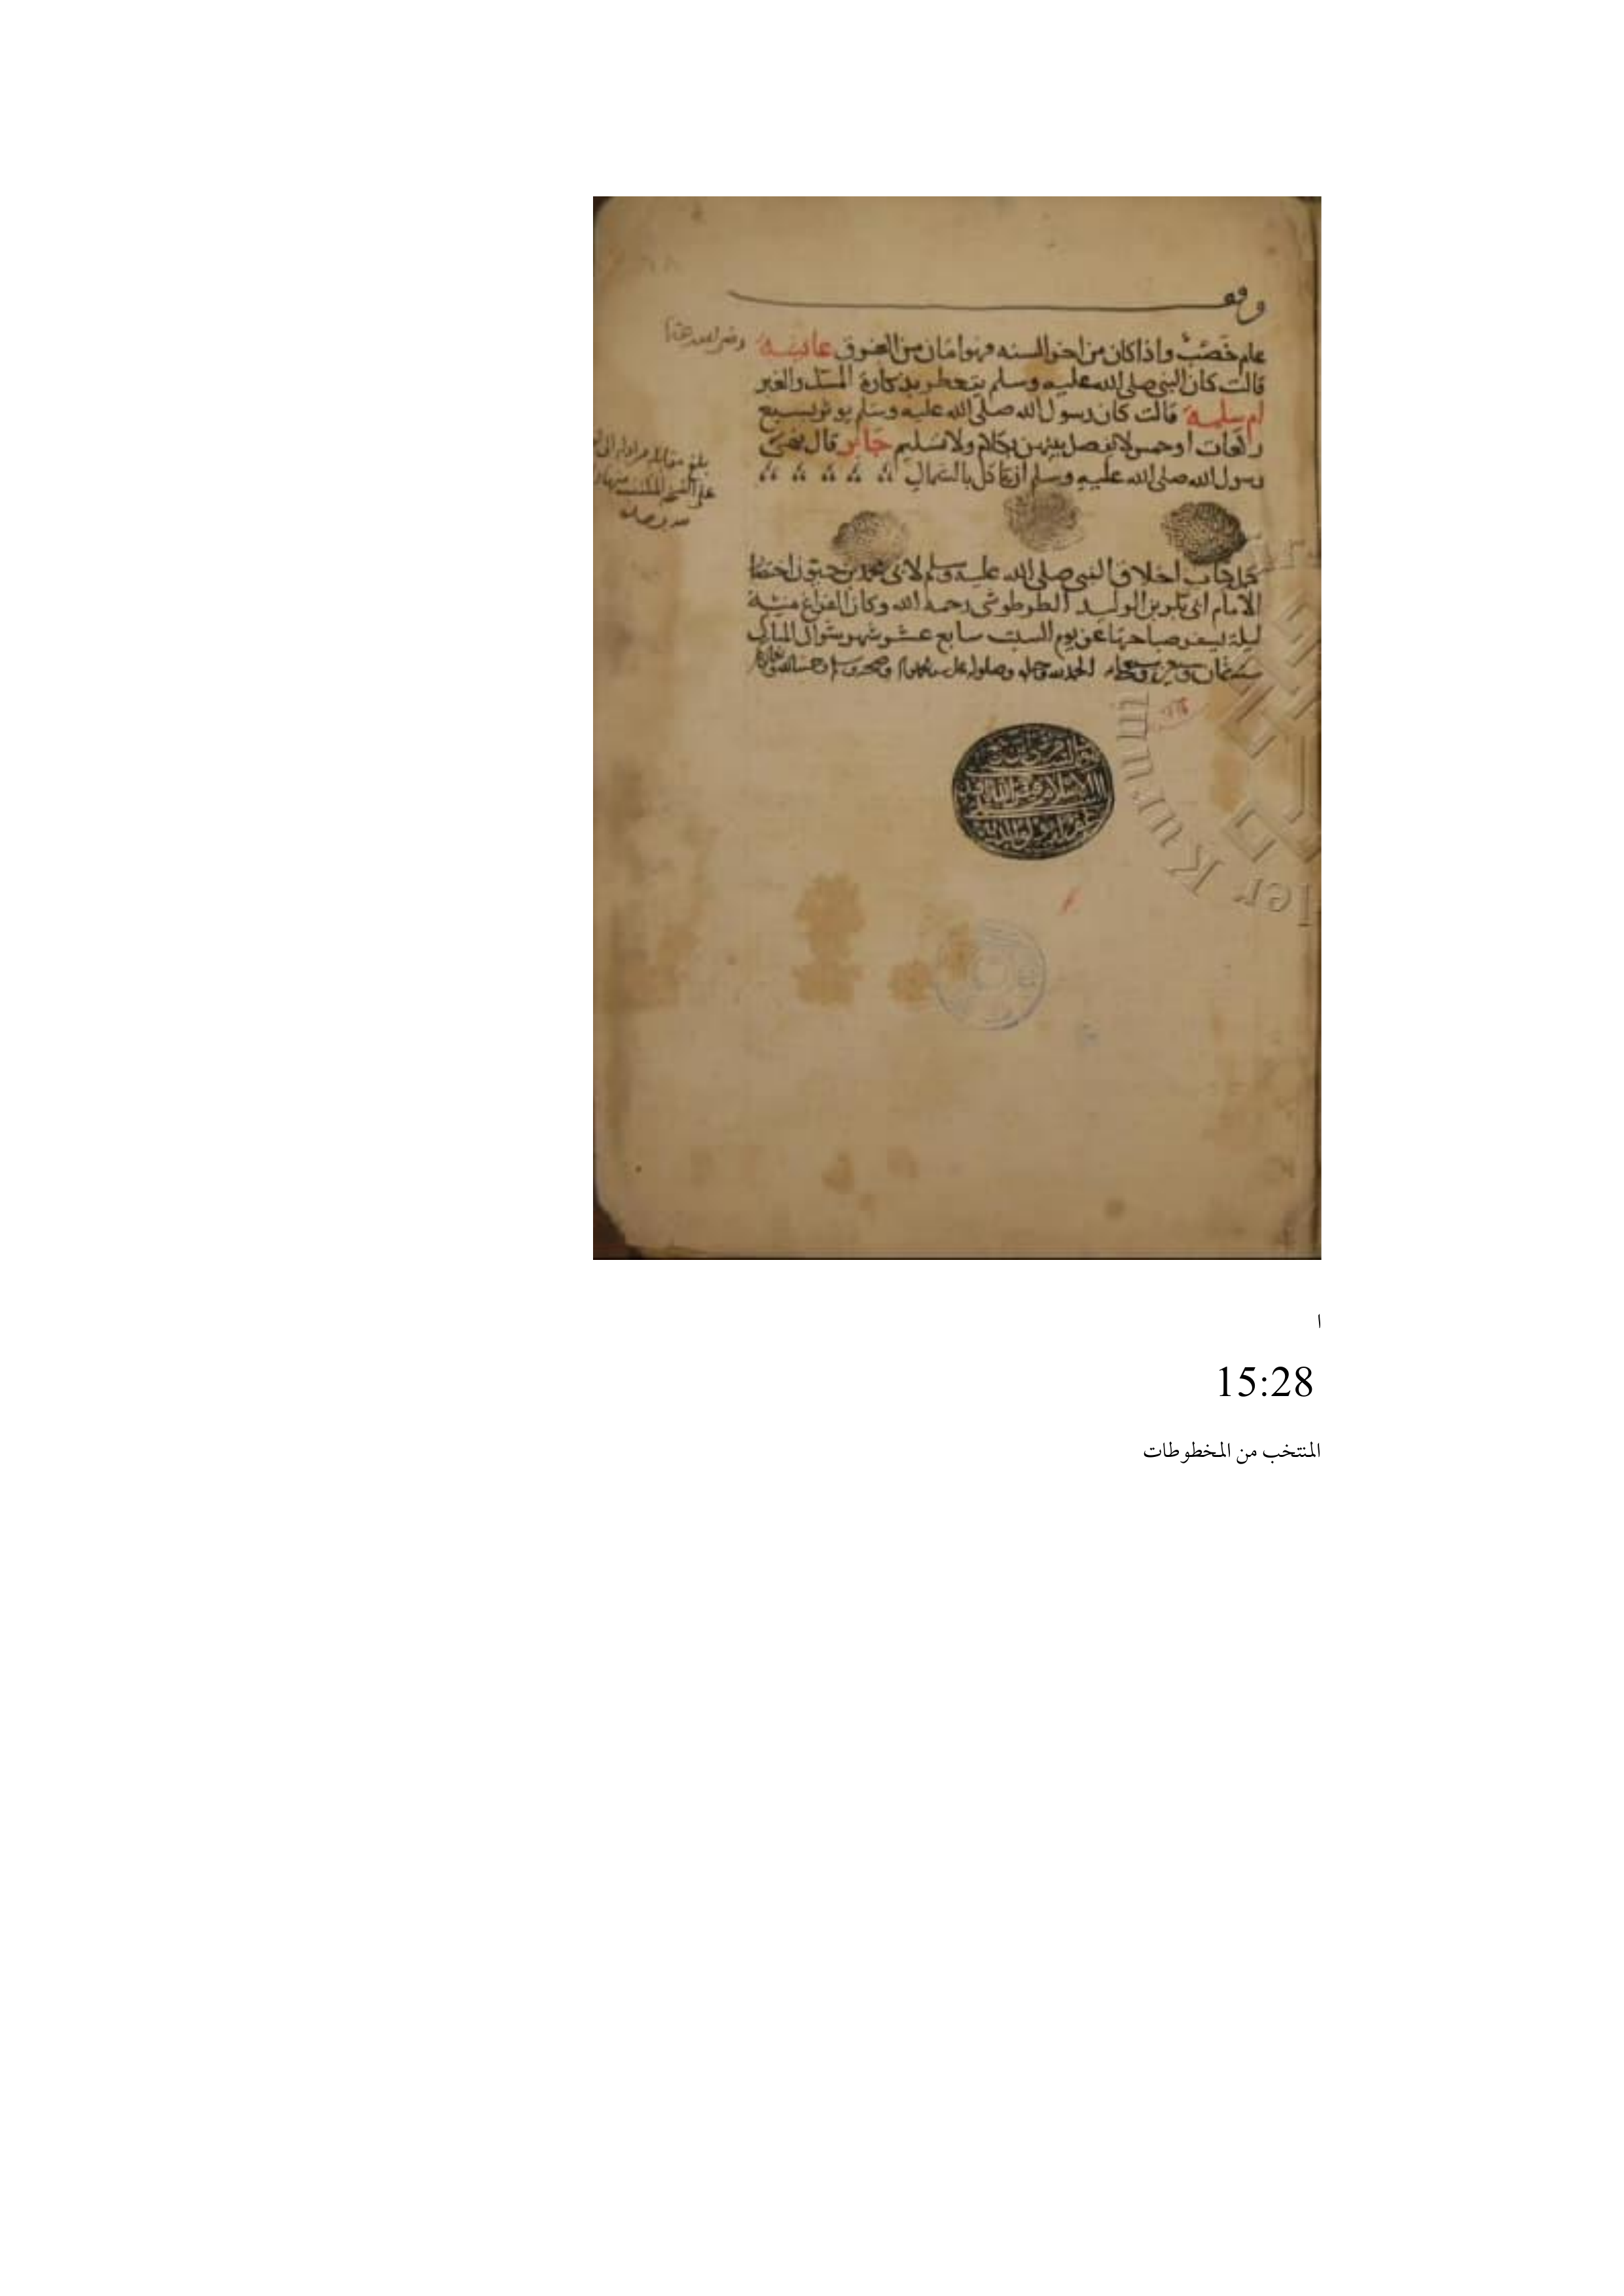 وقف
عام خصب واذا كان من اخر السنه فهو امان من الغرق عائشة
قالت كان النبي صلى الله عليه وسلم يتعطر بذكارة المسك والعنبر
ام سلمة قالت كان رسول الله صلى الله عليه وسلم يوتر بسبع
ركعات او خمس لا يفصل بينهن بكلام ولا تسليم جابر قال نهى
رسول الله صلى الله عليه وسلم ان ناكل بالشمال
بلغ مقابلة
كمل كتاب اخلاق النبي صلى الله عليه وسلم لابي محمد بن حيون اختصار
الامام ابي بكر بن الوليد الطرطوشي رحمه الله وكان الفراغ منه
ليلة يسفر صباحها عن يوم السبت سابع عشر شهر شوال المبارك
الحمد لله وحده وصلواته على
ler Kurumu
ا
15:28
المنتخب من المخطوطات